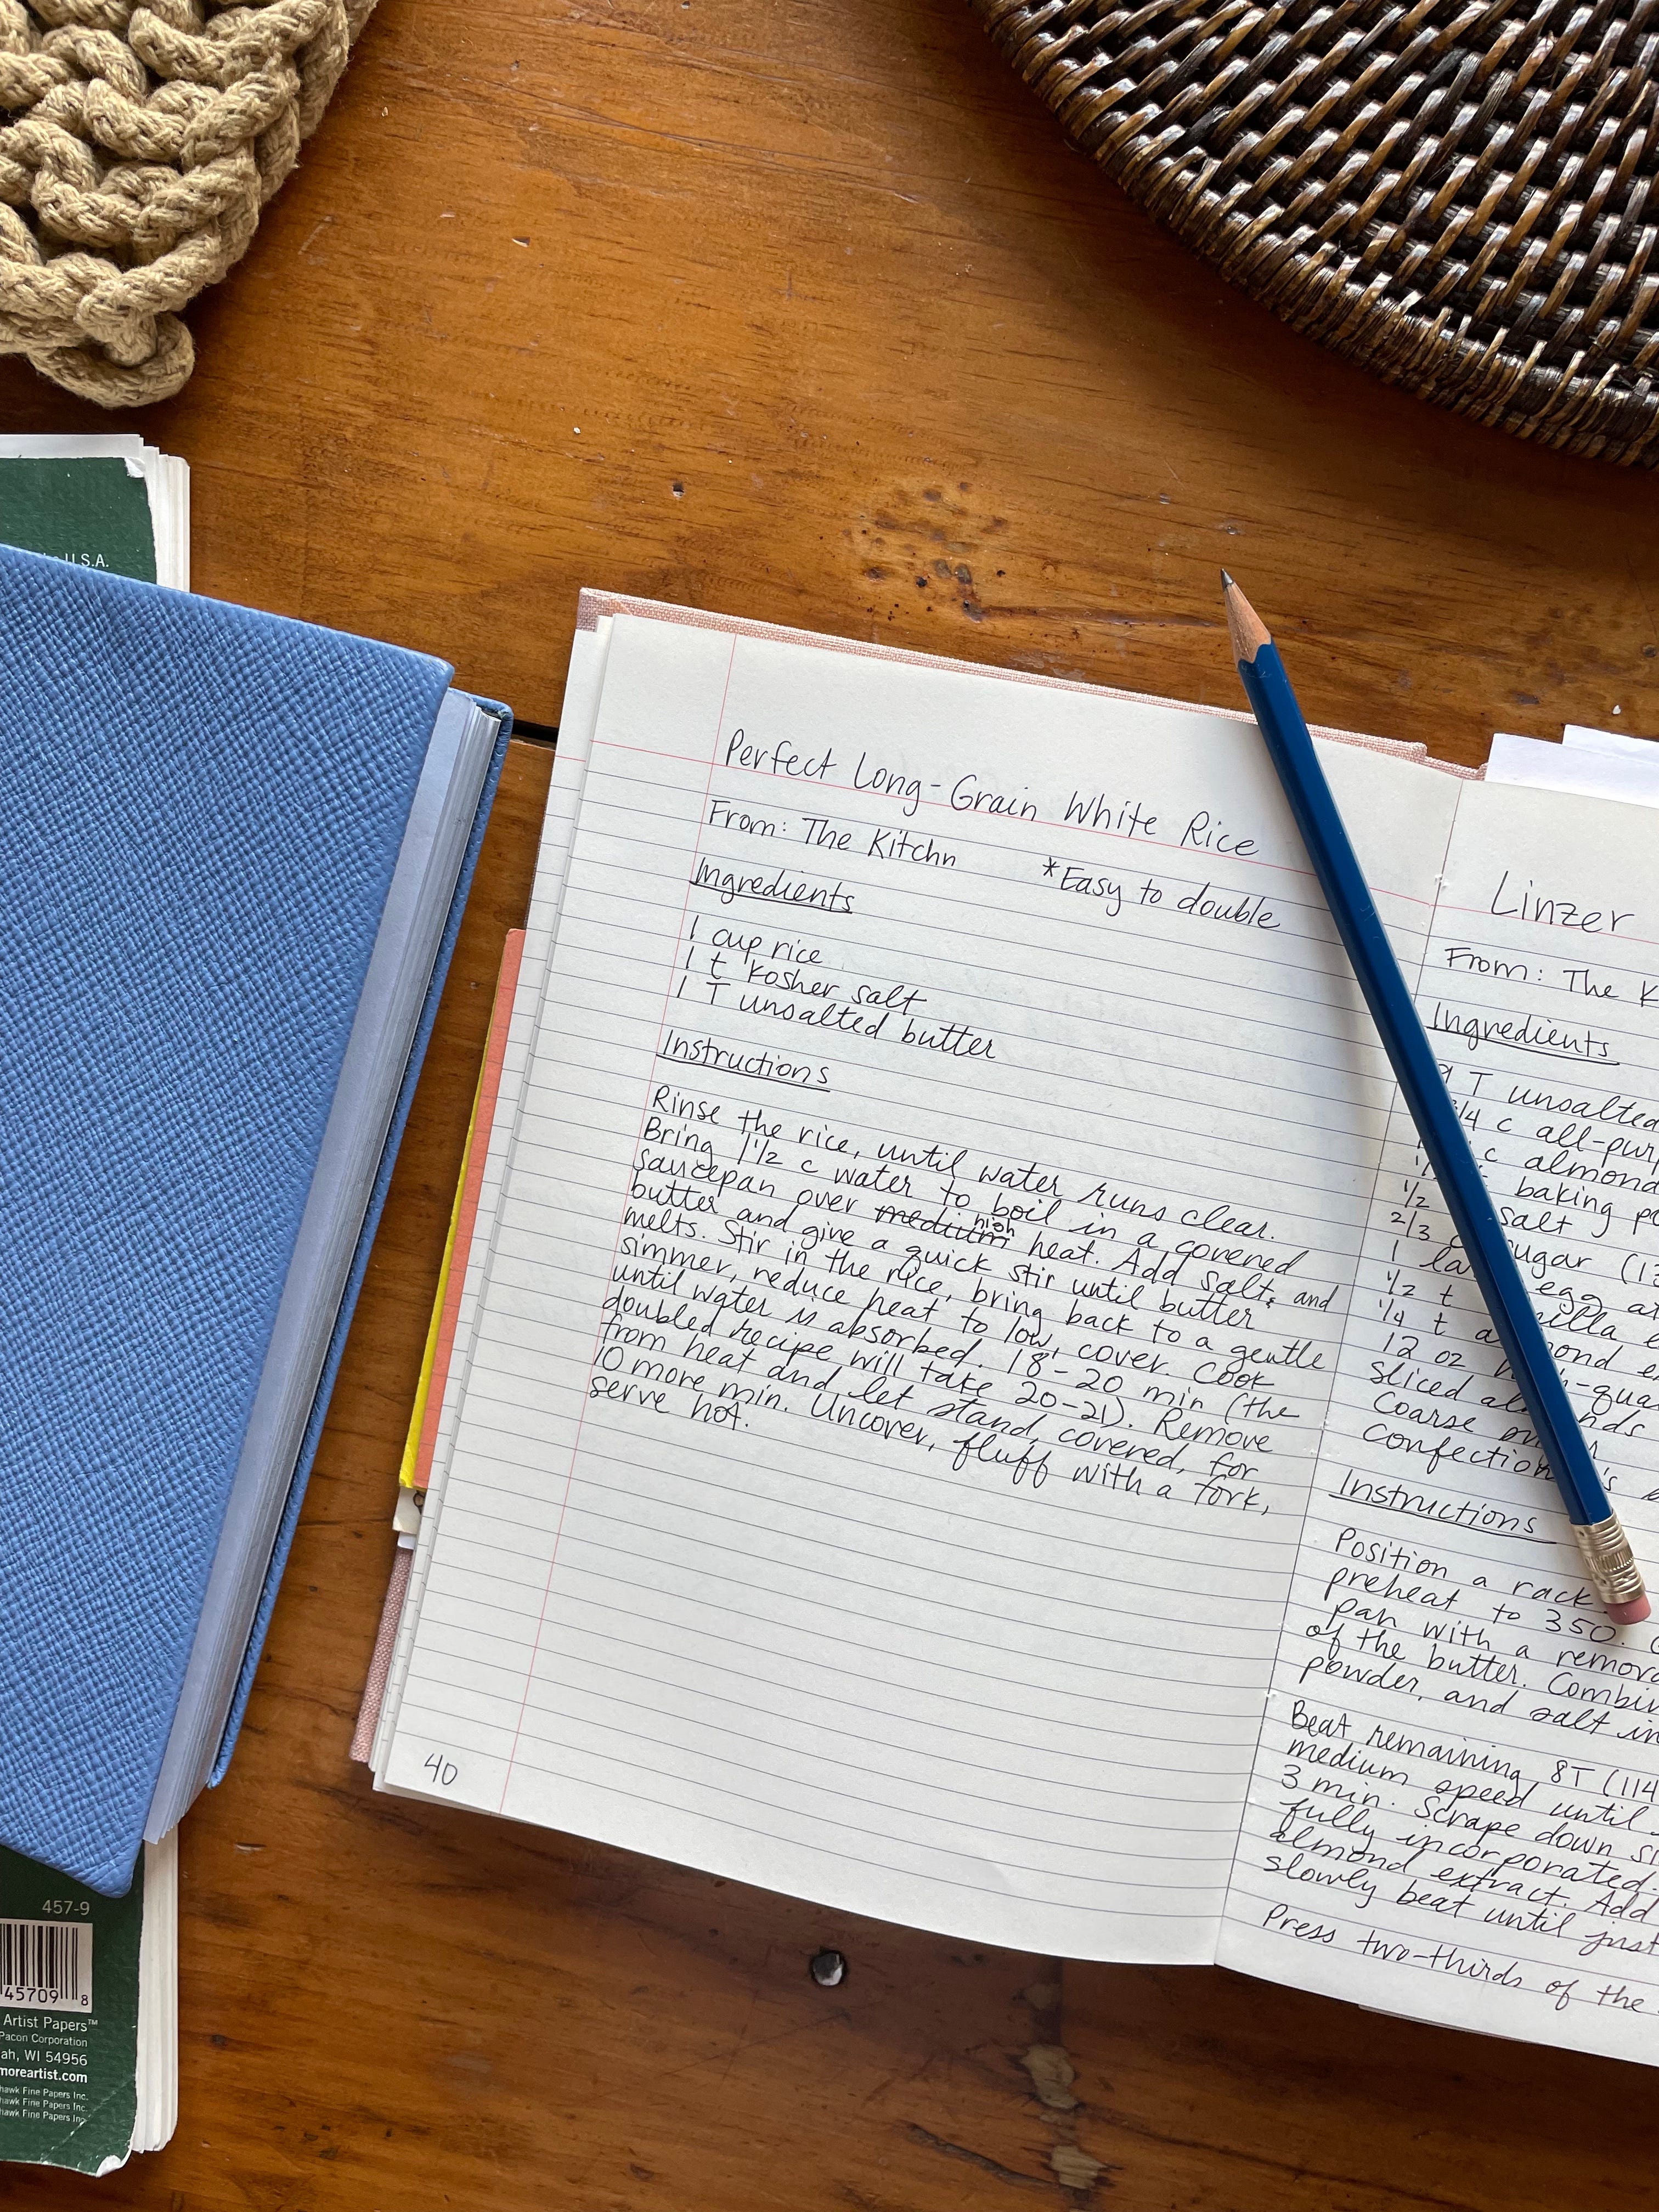 Perfect Long-Grain White Rice
From: The Kitchn *Easy to double
Ingredients
1 cup rice
1 t kosher salt
1 T unsalted butter
Instructions
Rinse the rice, until water runs clear.
Bring 1 1/2 c water to boil in a covered
saucepan over medium high heat. Add salt, and
butter and give a quick stir until butter
melts. Stir in the rice, bring back to a gentle
simmer, reduce heat to low, cover. Cook
until water is absorbed. 18-20 min (the
doubled recipe will take 20-21). Remove
from heat and let stand, covered, for
10 more min. Uncover, fluff with a fork,
serve hot.
40
Linzer
From: The K
Ingredients
9 T unsalted
3/4 c all-purp
c almond
baking po
1/2 salt
2/3 c sugar (13
1 egg at
1/2 t
1/4 t
12 oz
sliced
Coarse
Confection 's
Instructions
Position a rack
preheat to 350.
pan with a remova
of the butter. Combin
powder, and salt in
Beat remaining 8T (114
medium speed until
3 min. Scrape down si
fully incorporated.
almond extract. Add
slowly beat until just
Press two-thirds of the
U.S.A.
457-9
45709 8
Artist Papers™
Pacon Corporation
ah, WI 54956
moreartist.com
hawk Fine Papers Inc.
hawk Fine Papers Inc.
hawk Fine Papers Inc.